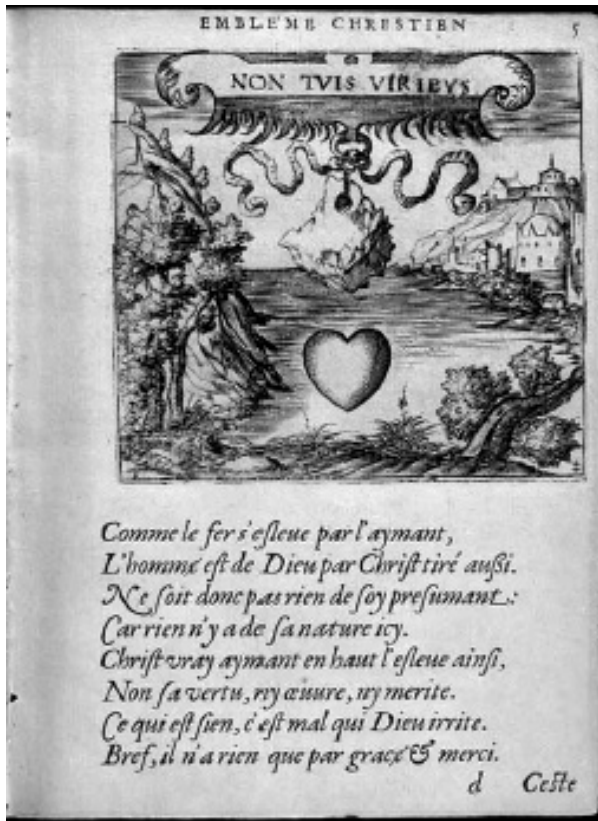 EMBLEME CHRESTIEN 5
NON TVIS VIRIBVS
Comme le fer s'eſleue par l'aymant,
L'homme eſt de Dieu par Chriſt tiré außi.
Ne ſoit donc pas rien de ſoy preſumant:
Car rien n'y a de ſa nature icy.
Chriſt vray aymant en haut l'eſleue ainſi,
Non ſa vertu, ny œuure, ny merite.
Ce qui eſt ſien, c'eſt mal qui Dieu irrite.
Bref, il n'a rien que par grace & merci.
d Ceſte